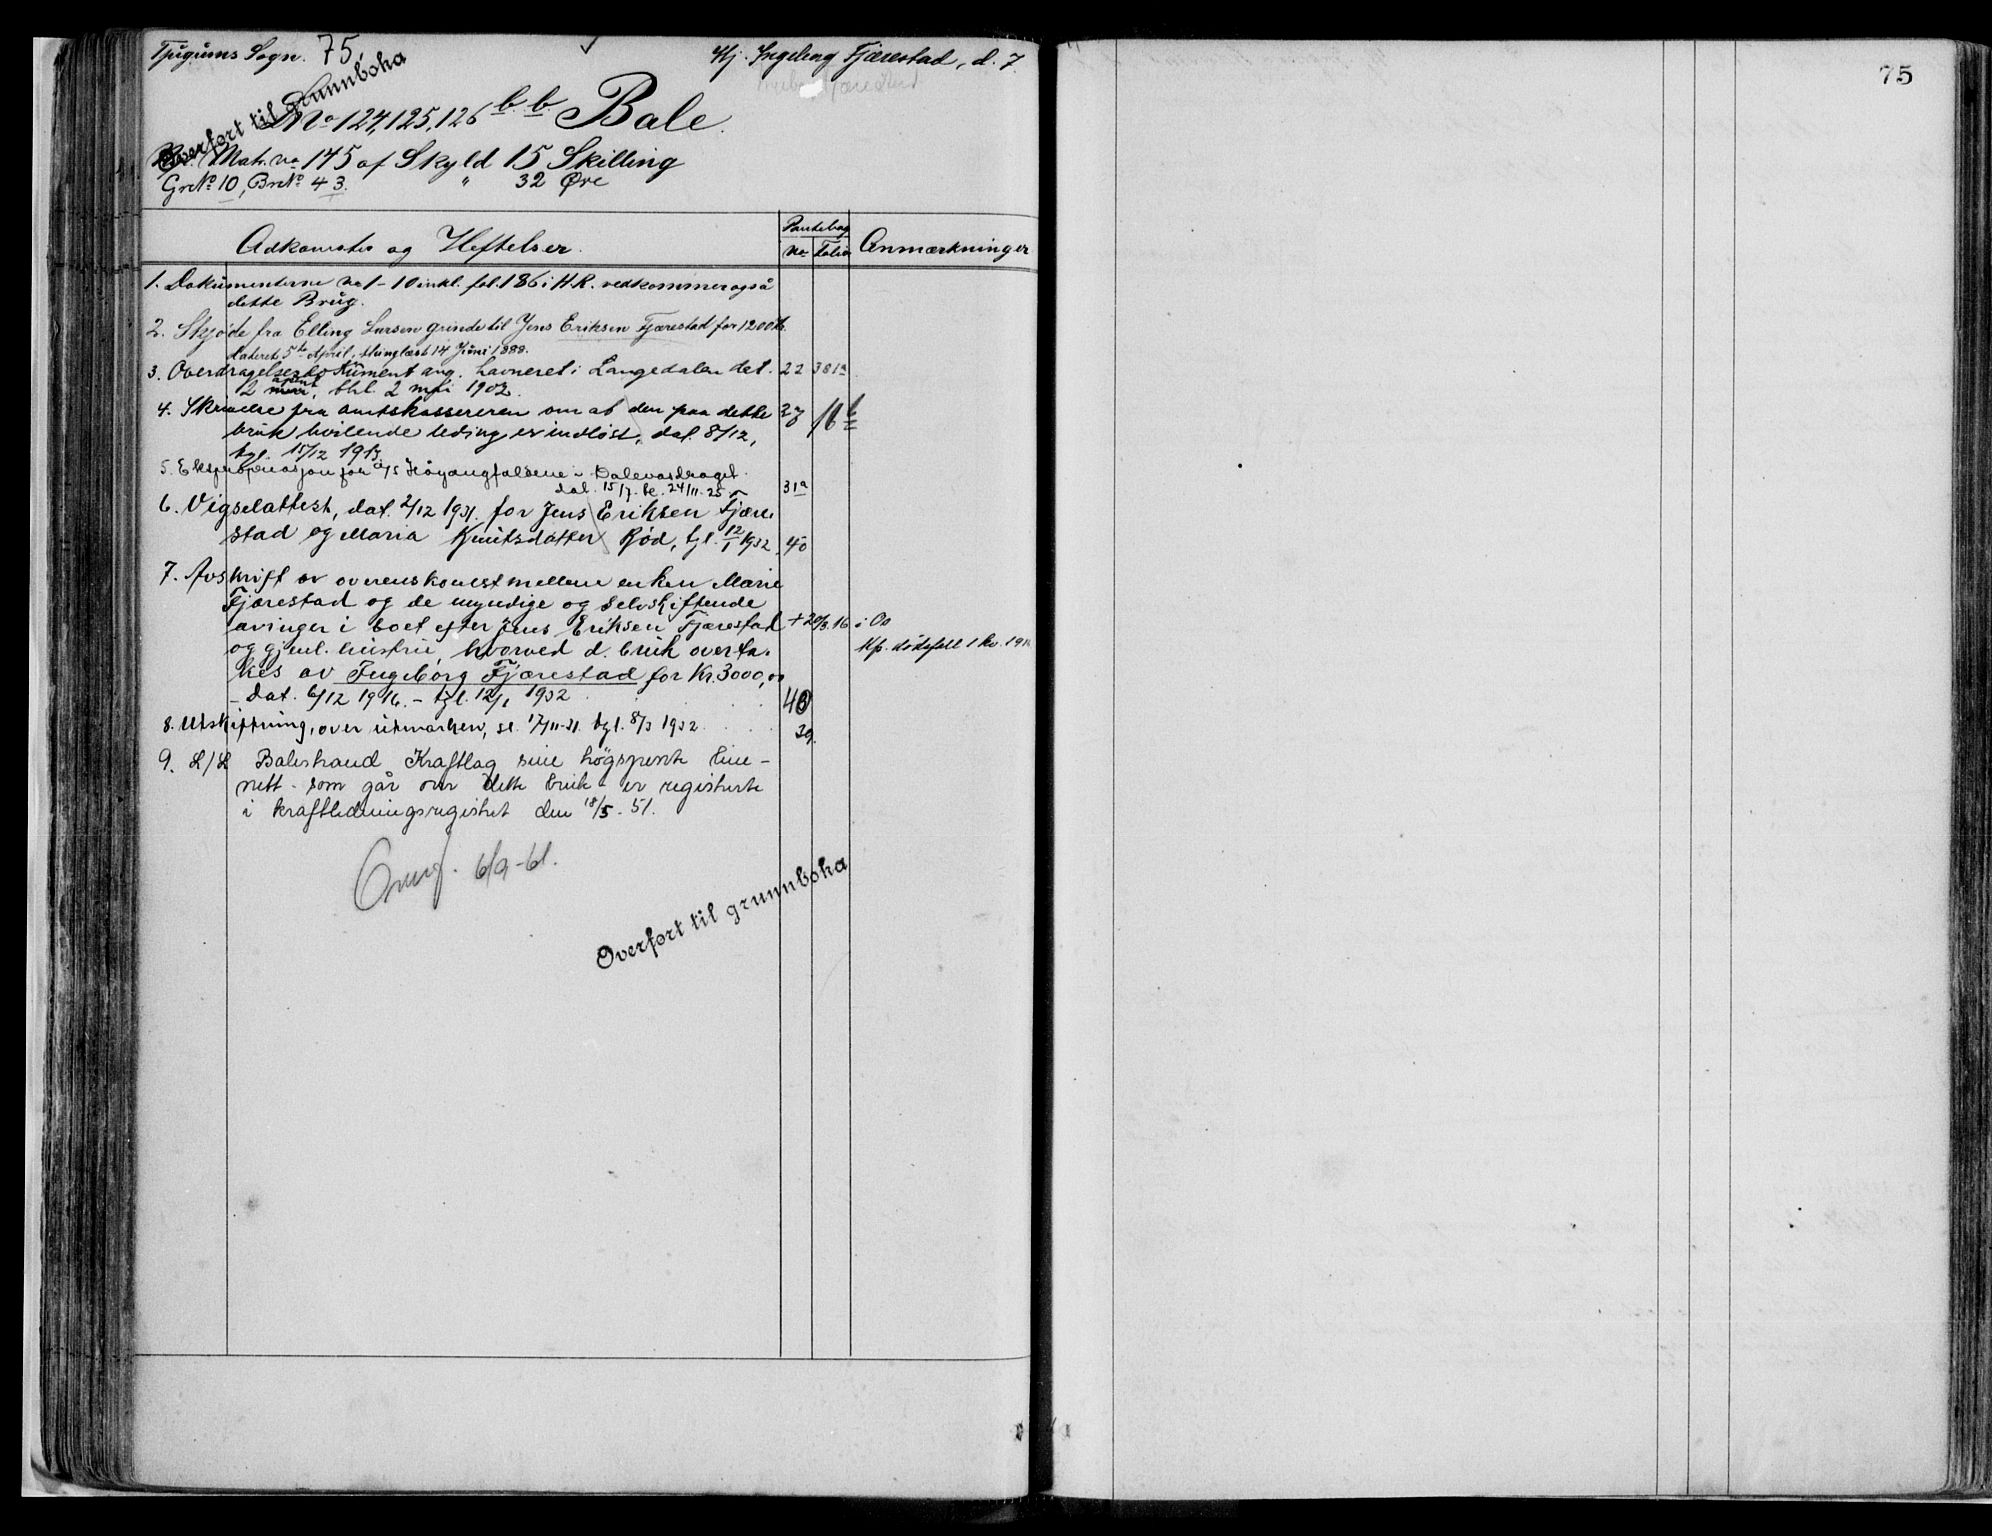 Tjugums Sogn. 75
Hj. Ingeborg Fjærestad, d. 7.
Overført til grunnboka
No 124, 125, 126 b. b. Bale.
Mat. no 145 af Skyld 15 Skilling
GrNo 10, BrNo 43. " 32 Øre
Adkomster og Heftelser.
Pantebog
No Folio
Anmærkninger
1. Dokumenterne no 1-10 inkl. fol. 186 i H.R. vedkommer også
dette Brug.
2. Skjøde fra Elling Larsen Grinde til Jens Eriksen Fjærestad for 1200 k.
dateret 5te April, thinglæst 14 Juni 1888.
3. Overdragelsesdokument ang. havneret i Langedalen dat. 22 381a
2 mai, thl. 2 mai 1902.
4. Skrivelse fra amtskassereren om at den paa dette 27 16b
bruk hvilende leding er indløst, dat. 8/12,
tgl. 15/12 1913.
5. Ekspropriasjon for A/S Höyangfaldene i Dalevasdraget
dat. 15/7. te. 24/11. 25 31a
6. Vigselattest, dat. 2/12 1931. for Jens Eriksen Fjære
stad og Maria Knutsdatter Rød, tgl. 12/1 1932 40
7. Avskrift av overenskomst mellem enken Marie
Fjærestad og de myndige og selvskiftende
arvinger i boet efter Jens Eriksen Fjærestad
og gjenl. hustru, hvorved d. bruk overta-
kes av Ingeborg Fjærestad for Kr. 3000,00
- dat. 6/12 1916. - tgl. 12/1 1932 40
Kfr. dødsfall 1 kv. 19
8. Utskiftning, over utmarken, sl. 17/11-31. tgl. 8/3 1932 39.
9. L/L Balestrand Kraftlag sine högspente line-
nett som går over dette bruk er registrerte
i kraftledningsregistret den 18/5-51.
6/9-61.
Overført til grunnboka
75